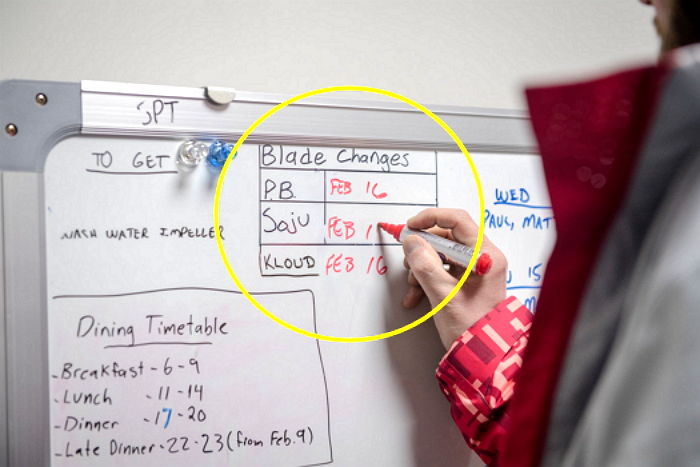 SPT
TO GET
WASH WATER IMPELLER
Blade Changes
P.B. FEB 16
Soju FEB 1
KLOUD FEB 16
WED
PAUL, MAT
15
Dining Timetable
-Breakfast - 6 - 9
-Lunch - 11 - 14
-Dinner - 17 - 20
-Late Dinner - 22 - 23 (from Feb. 9)